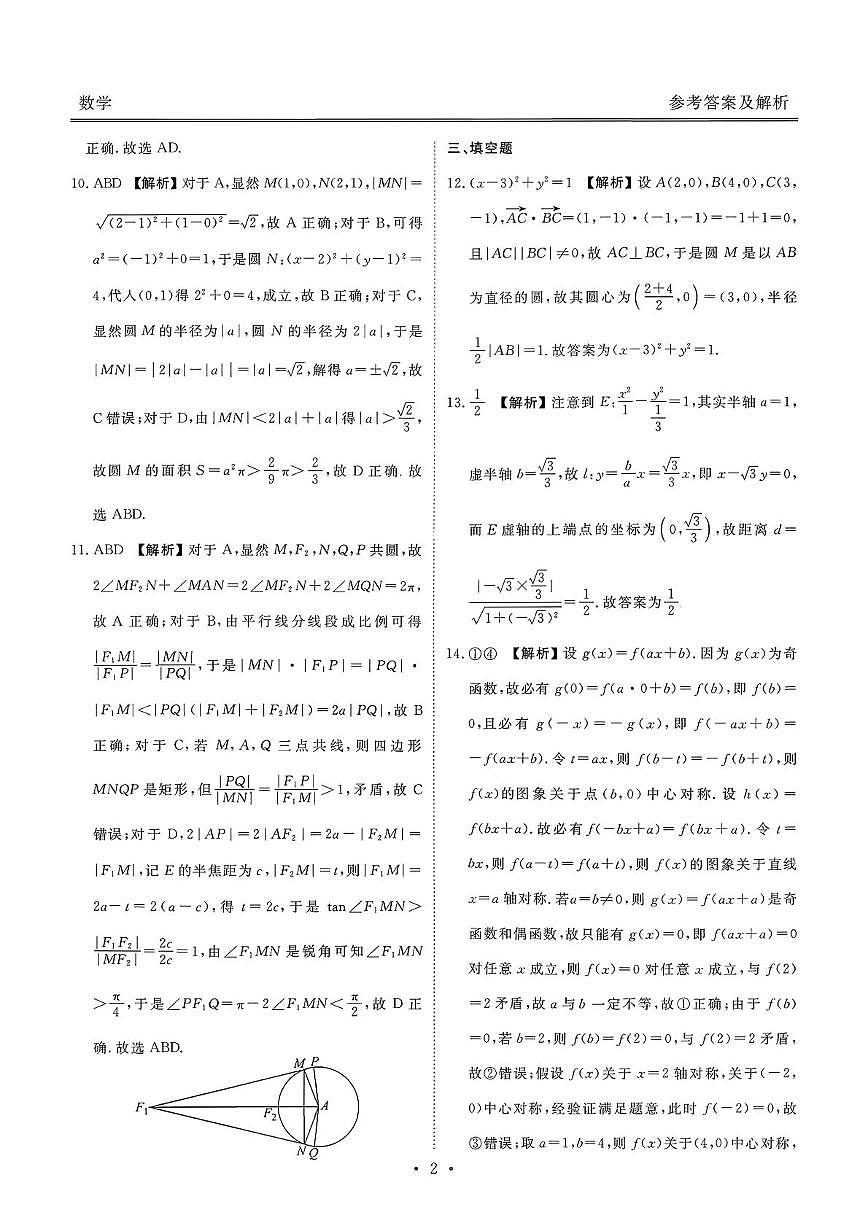 数学
参考答案及解析
正确.故选 AD.
10. ABD 【解析】对于 A,显然 M(1,0),N(2,1),|MN|=
√((2-1)²+(1-0)²)=√2,故 A 正确;对于 B,可得
a²=(-1)²+0=1,于是圆 N:(x-2)²+(y-1)²=
4,代人(0,1)得 2²+0=4,成立,故 B 正确;对于 C,
显然圆 M 的半径为|a|,圆 N 的半径为 2|a|,于是
|MN|=|2|a|-|a||=|a|=√2,解得 a=±√2,故
C 错误;对于 D,由|MN|<2|a|+|a|得|a|>√2/3,
故圆 M 的面积 S=a²π>2/9π>2/3,故 D 正确.故
选 ABD.
11. ABD 【解析】对于 A,显然 M,F₂,N,Q,P 共圆,故
2∠MF₂N+∠MAN=2∠MF₂N+2∠MQN=2π,
故 A 正确;对于 B,由平行线分线段成比例可得
|F₁M|/|F₁P|=|MN|/|PQ|,于是|MN|·|F₁P|=|PQ|·
|F₁M|<|PQ|(|F₁M|+|F₂M|)=2a|PQ|,故 B
正确;对于 C,若 M,A,Q 三点共线,则四边形
MNQP 是矩形,但|PQ|/|MN|=|F₁P|/|F₁M|>1,矛盾,故 C
错误;对于 D,2|AP|=2|AF₂|=2a-|F₂M|=
|F₁M|,记 E 的半焦距为 c,|F₂M|=t,则|F₁M|=
2a-t=2(a-c),得 t=2c,于是 tan∠F₁MN>
|F₁F₂|/|MF₂|=2c/2c=1,由∠F₁MN 是锐角可知∠F₁MN
>π/4,于是∠PF₁Q=π-2∠F₁MN<π/2,故 D 正
确.故选 ABD.
M P
F₁ F₂ A
N Q
三、填空题
12. (x-3)²+y²=1 【解析】设 A(2,0),B(4,0),C(3,
-1),AC→·BC→=(1,-1)·(-1,-1)=-1+1=0,
且|AC||BC|≠0,故 AC⊥BC,于是圆 M 是以 AB
为直径的圆,故其圆心为((2+4)/2,0)=(3,0),半径
1/2|AB|=1.故答案为(x-3)²+y²=1.
13. 1/2 【解析】注意到 E:x²/1-y²/(1/3)=1,其实半轴 a=1,
虚半轴 b=√3/3,故 l:y=b/a x=√3/3 x,即 x-√3y=0,
而 E 虚轴的上端点的坐标为(0,√3/3),故距离 d=
|-√3×√3/3|/√(1+(-√3)²)=1/2.故答案为1/2.
14. ①④ 【解析】设 g(x)=f(ax+b).因为 g(x)为奇
函数,故必有 g(0)=f(a·0+b)=f(b),即 f(b)=
0,且必有 g(-x)=-g(x),即 f(-ax+b)=
-f(ax+b).令 t=ax,则 f(b-t)=-f(b+t),则
f(x)的图象关于点(b,0)中心对称.设 h(x)=
f(bx+a).故必有 f(-bx+a)=f(bx+a).令 t=
bx,则 f(a-t)=f(a+t),则 f(x)的图象关于直线
x=a 轴对称.若a=b≠0,则 g(x)=f(ax+a)是奇
函数和偶函数,故只能有 g(x)=0,即 f(ax+a)=0
对任意 x 成立,则 f(x)=0 对任意 x 成立,与 f(2)
=2 矛盾,故 a 与 b 一定不等,故①正确;由于 f(b)
=0,若 b=2,则 f(b)=f(2)=0,与 f(2)=2 矛盾,
故②错误;假设 f(x)关于 x=2 轴对称,关于(-2,
0)中心对称,经验证满足题意,此时 f(-2)=0,故
③错误;取 a=1,b=4,则 f(x)关于(4,0)中心对称,
· 2 ·